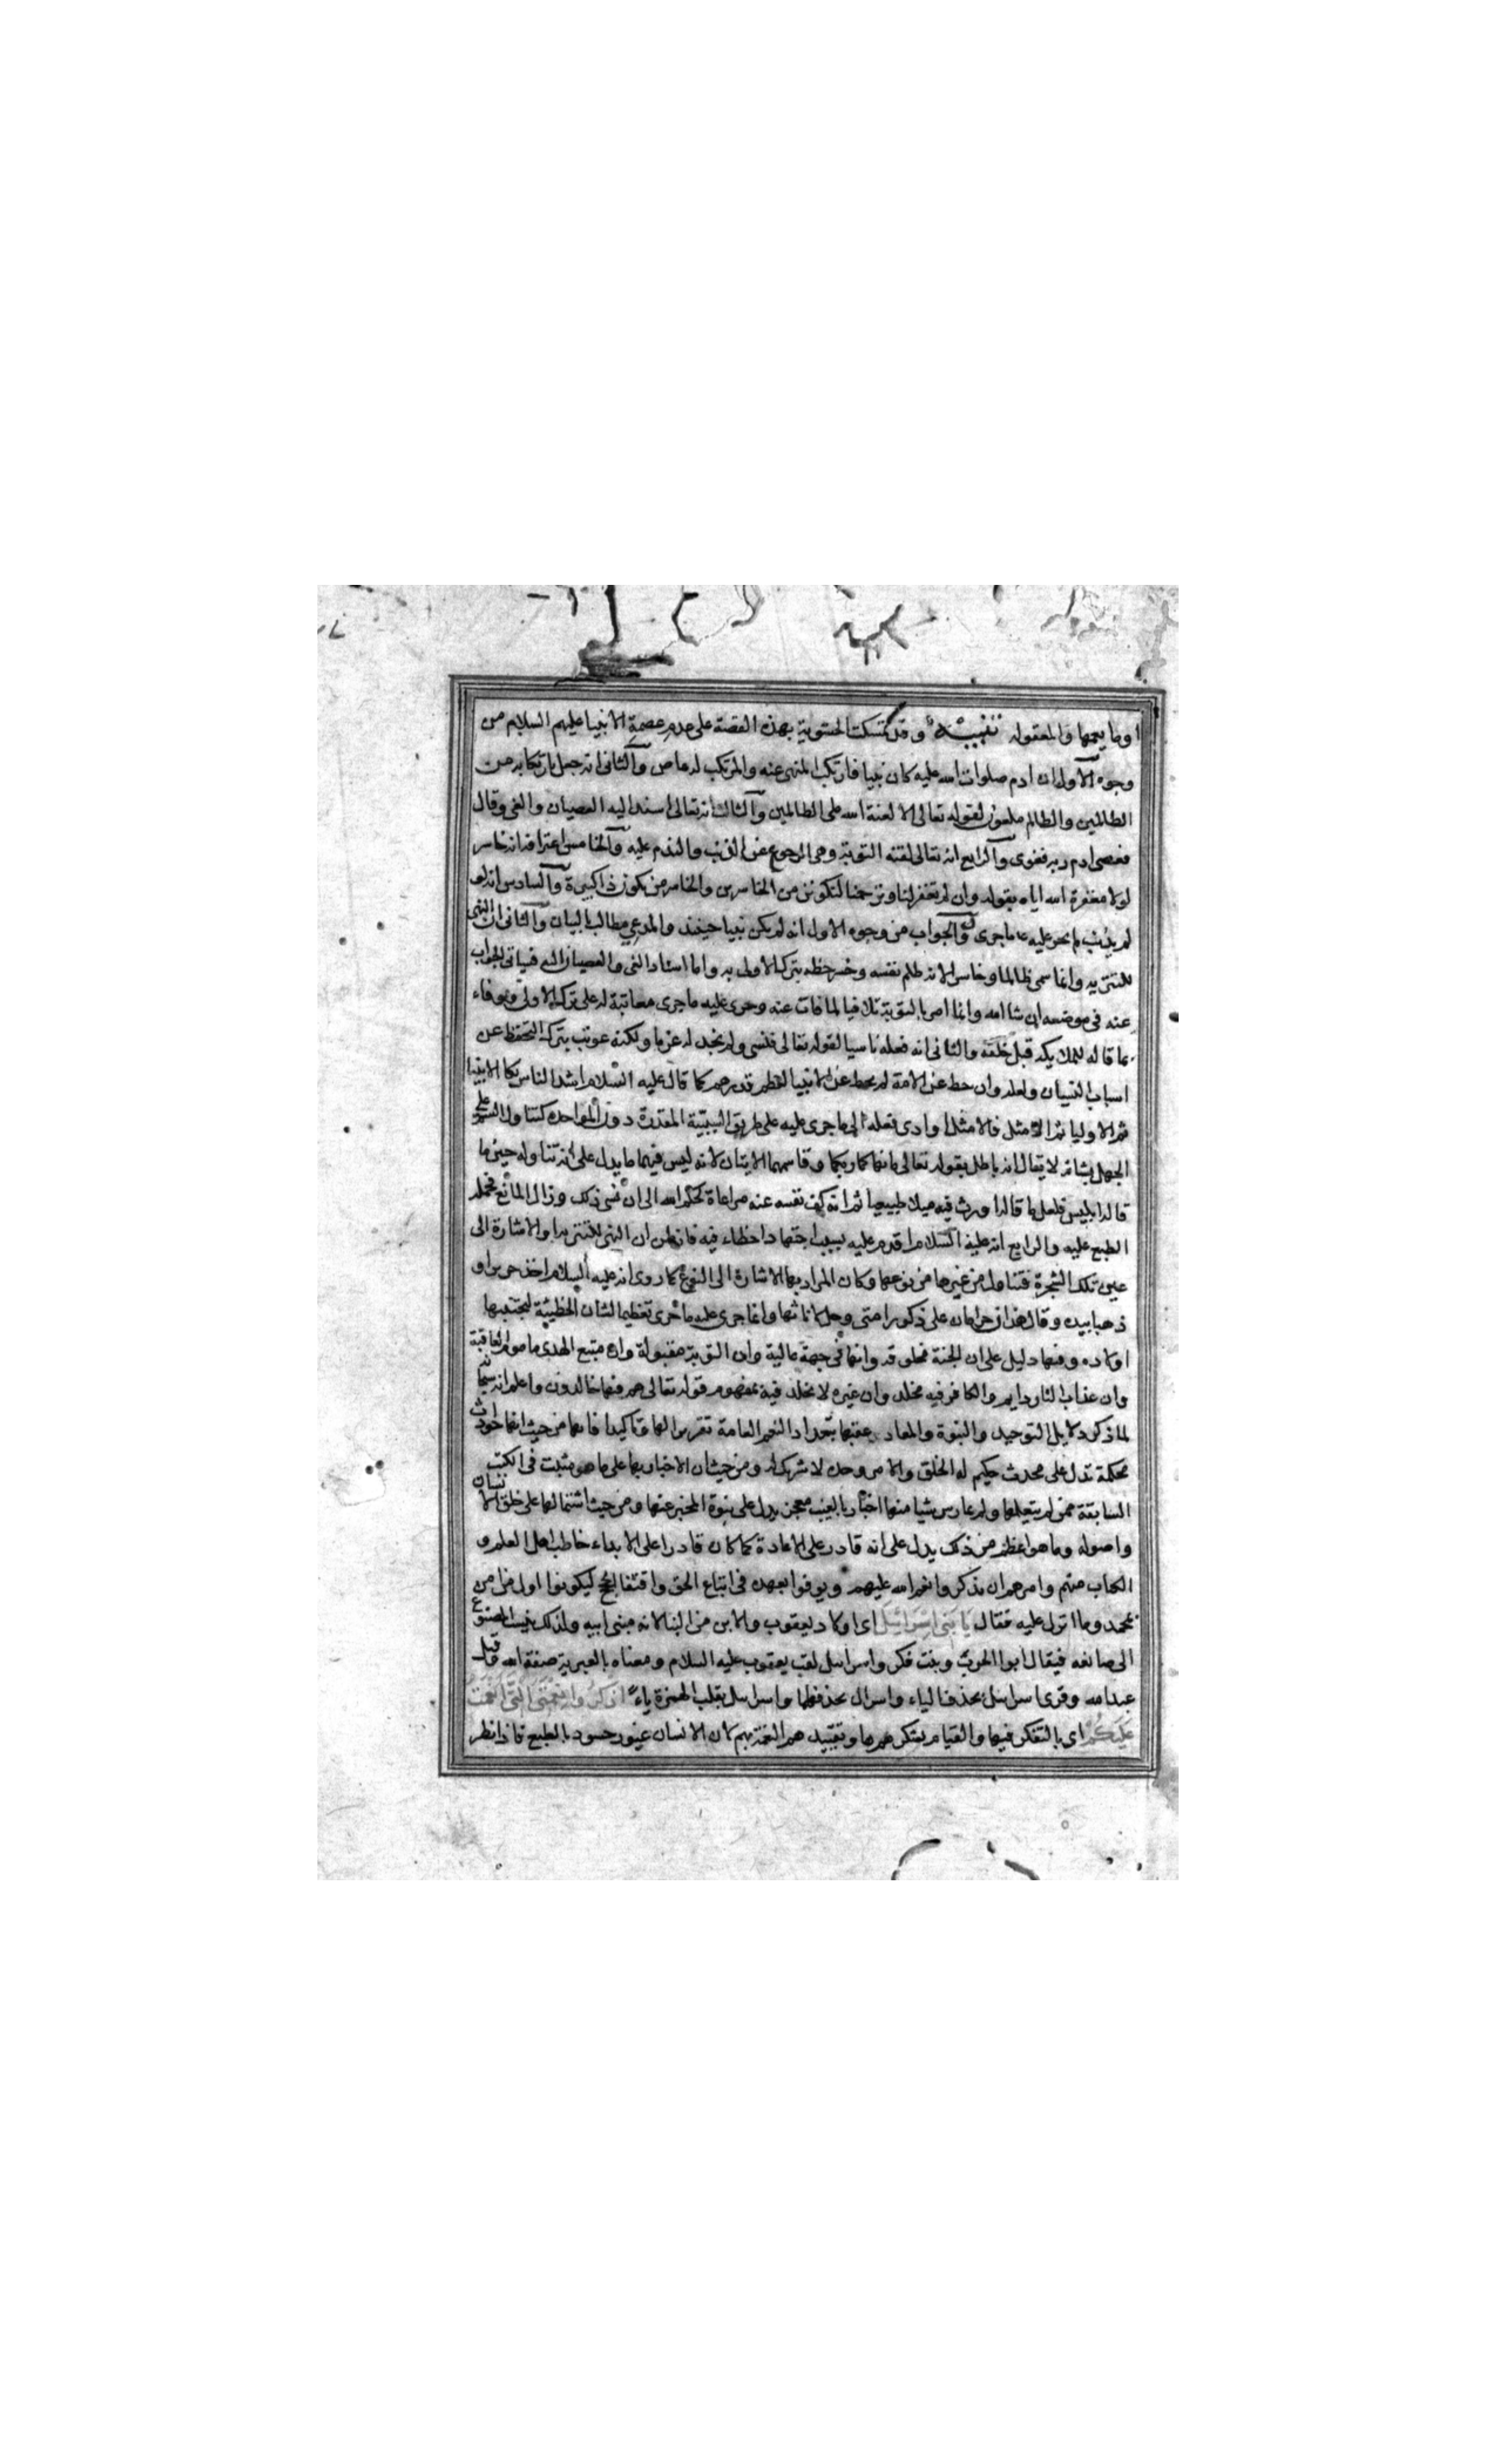 او ما يعمها والمعقولة تنبيه وقد تمسكت الحشوية بهذه القصة على عدم عصمة الانبيا عليهم السلام من
وجوه الاول ان ادم صلوات الله عليه كان نبيا فارتكب المنهى عنه والمرتكب له عاص والثانى انه جعل بارتكابه من
الظالمين والظالم ملعون لقوله تعالى الا لعنة الله على الظالمين والثالث انه تعالى اسند اليه العصيان والغى وقال
فعصى ادم ربه فغوى والرابع انه تعالى لقنه التوبة وهى الرجوع عن الذنب والندم عليه والخامس اعترافه انه خاسر
لولا مغفرة الله اياه بقوله وان لم تغفر لنا وترحمنا لنكونن من الخاسرين والخاسر من يكون ذا كبيرة والسادس انه لو
لم يذنب لم يجر عليه ما جرى والجواب من وجوه الاول انه لم يكن نبيا حينئذ والمدعى مطالب بالبيان والثانى ان النهى
للتنزيه وانما سمى ظالما وخاسرا لانه ظلم نفسه وخسر حظه بترك الاولى به واما اسناد الغى والعصيان اليه فسياتى الجواب
عنه فى موضعه ان شا الله وانما امر بالتوبة تلافيا لما فات عنه وجرى عليه ما جرى معاتبة له على ترك الاولى ووفاء
بما قاله للملايكة قبل خلقه والثانى انه فعله ناسيا لقوله تعالى فنسى ولم نجد له عزما ولكنه عوتب بترك التحفظ عن
اسباب النسيان ولعله وان حط عن الامة لم يحط عن الانبيا لعظم قدرهم كما قال عليه السلام اشد الناس بلا الانبيا
ثم الاوليا ثم الامثل فالامثل او ادى فعله الى ما جرى عليه على طريق السببية المقدرة دون المواخدة كتناول السم على
الجهل بشانه لا يقال انه باطل بقوله تعالى ما نهاكما ربكما وقاسمهما الايتان لانه ليس فيهما ما يدل على انه تناوله حين ما
قال ابليس فلعل ما قاله اورث فيه ميلا طبيعيا ثم انه كف نفسه عنه مراعاة لحكم الله الى ان نسى ذلك وزال المانع فحمله
الطبع عليه والرابع انه عليه السلام اقدم عليه بسبب اجتهاد اخطاء فيه فانه ظن ان النهى للتنزيه او الاشارة الى
عين تلك الشجرة فتناول من غيرها من نوعها وكان المراد بها الاشارة الى النوع كما روى انه عليه السلام اخذ حريرا و
ذهبا بيده وقال هذان حرامان على ذكور امتى وحل لاناثها وانما جرى عليه ما جرى تعظيما لشان الخطيئة ليجتنبها
اولاده وفيها دليل على ان الجنة مخلوقة وانها فى جهة عالية وان التوبة مقبولة وان متبع الهدى مامون العاقبة
وان عذاب النار دايم والكافر فيه مخلد وان غيره لا يخلد فيه بمفهوم قوله تعالى هم فيها خالدون واعلم انه سبحانه
لما ذكر دلايل التوحيد والنبوة والمعاد عقبها بتعداد النعم العامة تقريرا لها وتاكيدا فانها من حيث انها حوادث
محكمة تدل على محدث حكيم له الخلق والامر وحده لا شريك له ومن حيث ان الاخبار بها على ما هو مثبت فى الكتب
السابقة ممن لم يتعلمها ولم يمارس شيا منها اخبار بالغيب معجز يدل على نبوة المخبر عنها ومن حيث اشتمالها على خلق الانسان
واصوله وما هو اعظم من ذلك يدل على انه قادر على الاعادة كما كان قادرا على الابداء خاطب اهل العلم و
الكتاب منهم وامرهم ان يذكروا نعم الله عليهم ويوفوا بعهده فى اتباع الحق واقتفا الحجج ليكونوا اول من امن
بمحمد وما انزل عليه فقال يا بنى اسرائيل اى اولاد يعقوب والابن من البنا لانه مبنى ابيه ولذلك ينسب المصنوع
الى صانعه فيقال ابو الحرب وبنت فكر واسرايل لقب يعقوب عليه السلام ومعناه بالعبرية صفوة الله وقيل
عبد الله وقرى اسرايل بحذف الياء واسرال بحذفهما واسراييل بقلب الهمزة ياء اذكروا نعمتى التى انعمت
عليكم اى بالتفكر فيها والقيام بشكرها وتقييد هم النعمة بهم لان الانسان غيور حسود بالطبع فاذا نظر